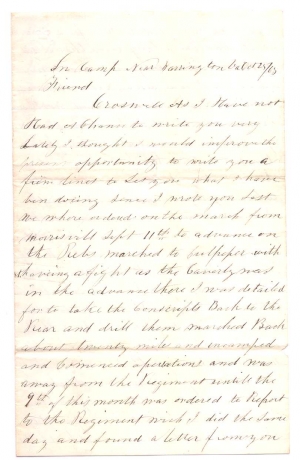 In Camp Near Warrington Va Oct 25/63
Friend
Croswell As I Have not
Had A Chance to write you very
Lately I thought I would improve the
opportunity to write you a
few lines to Let you what I have
ben doeing Since I wrote you Last
we whare orderd on the march from
Morrisvill Sept 11th to advance on
the Rebs marched to Culpeper with
haveing a fight as the Caverly was
in the advance thare I was detaild
for to take the Conscripts Back to the
Rear and drill them marched Back
about twenty miles and encamped
and comenced opperations and was
away from the Regiment untill the
9th of this month was ordered to Report
to the Regiment wich I did the same
day and found a letter from you